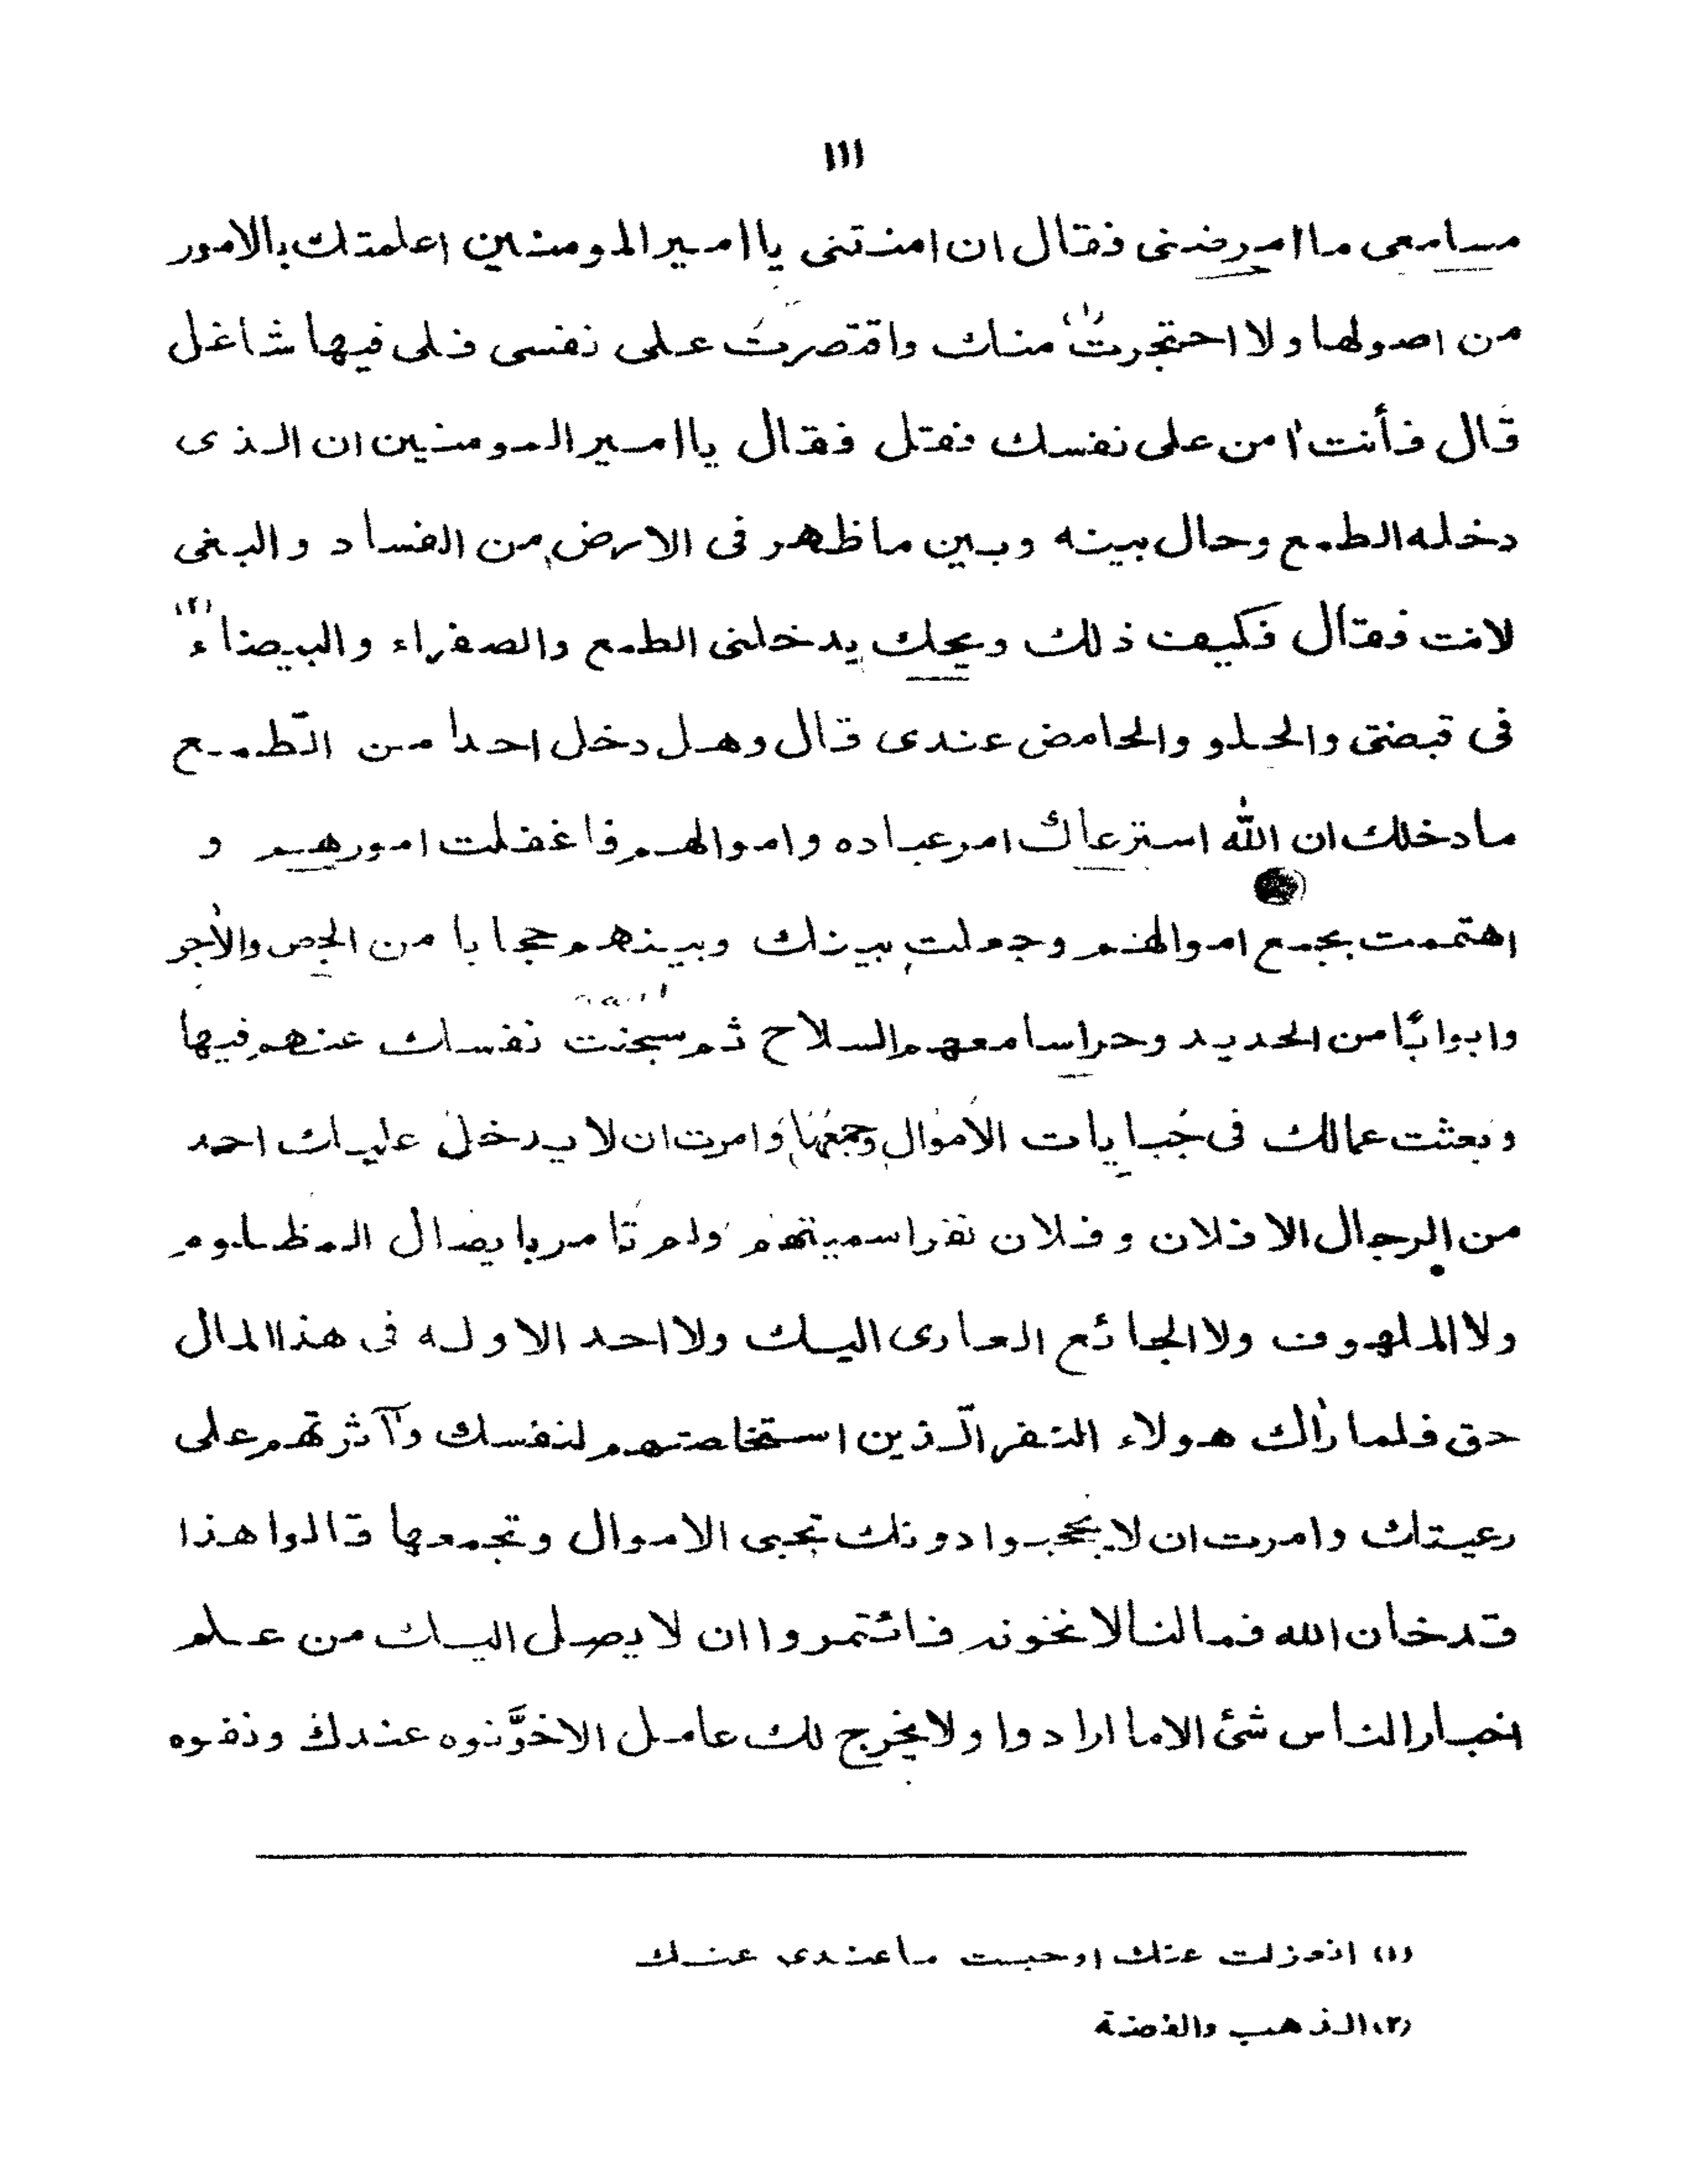 ١١١
مسامعى ما امرضنى فقال ان امنتنى يا امير المومنين اعلمتك بالامور
من اصولها ولا احتجرت(١) منك واقتصرت على نفسى فلى فيها شاغل
قال فأنت اٰمن على نفسك فقل فقال يا امير المومنين ان الذى
دخله الطمع وحال بينه وبين ما ظهر فى الارض من الفساد والبغى
لانت فقال فكيف ذلك ويحك يدخلنى الطمع والصفراء والبيضاء(٢)
فى قبضتى والحلو والحامض عندى قال وهل دخل احدا من الطمع
ما دخلك ان الله استرعاك امر عباده واموالهم فاغفلت امورهم و
اهتممت بجمع اموالهم وجعلت بينك وبينهم حجابا من الجص والأجر
وابوابًا من الحديد وحراسا معهم السلاح ثم سجنت نفسك عنهم فيها
وبعثت عمالك فى جُبايات الأموال وجمعها وامرت ان لا يدخل عليك احد
من الرجال الا فلان وفلان نفرا سميتهم ولم تامر بايصال المظلوم
ولا الملهوف ولا الجائع العارى اليك ولا احد الا وله فى هذا المال
حق فلما رٰاك هولاء النفر الّذين استخلصتهم لنفسك وآثرتهم على
رعيتك وامرت ان لا يحجبوا دونك تجبى الاموال وتجمعها قالوا هذا
قد خان الله فما لنا لا نخونه فائتمروا ان لا يصل اليك من علم
اخبار الناس شئ الا ما ارادوا ولا يخرج لك عامل الا خوَّنوه عندك ونفوه
(١) انعزلت عنك او حبست ما عندى عنك
(٢) الذهب والفضة